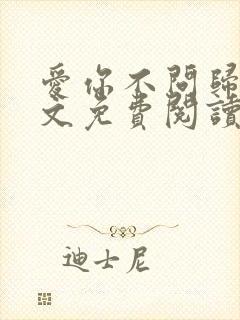 愛你不問歸
文免費閱讀
迪士尼